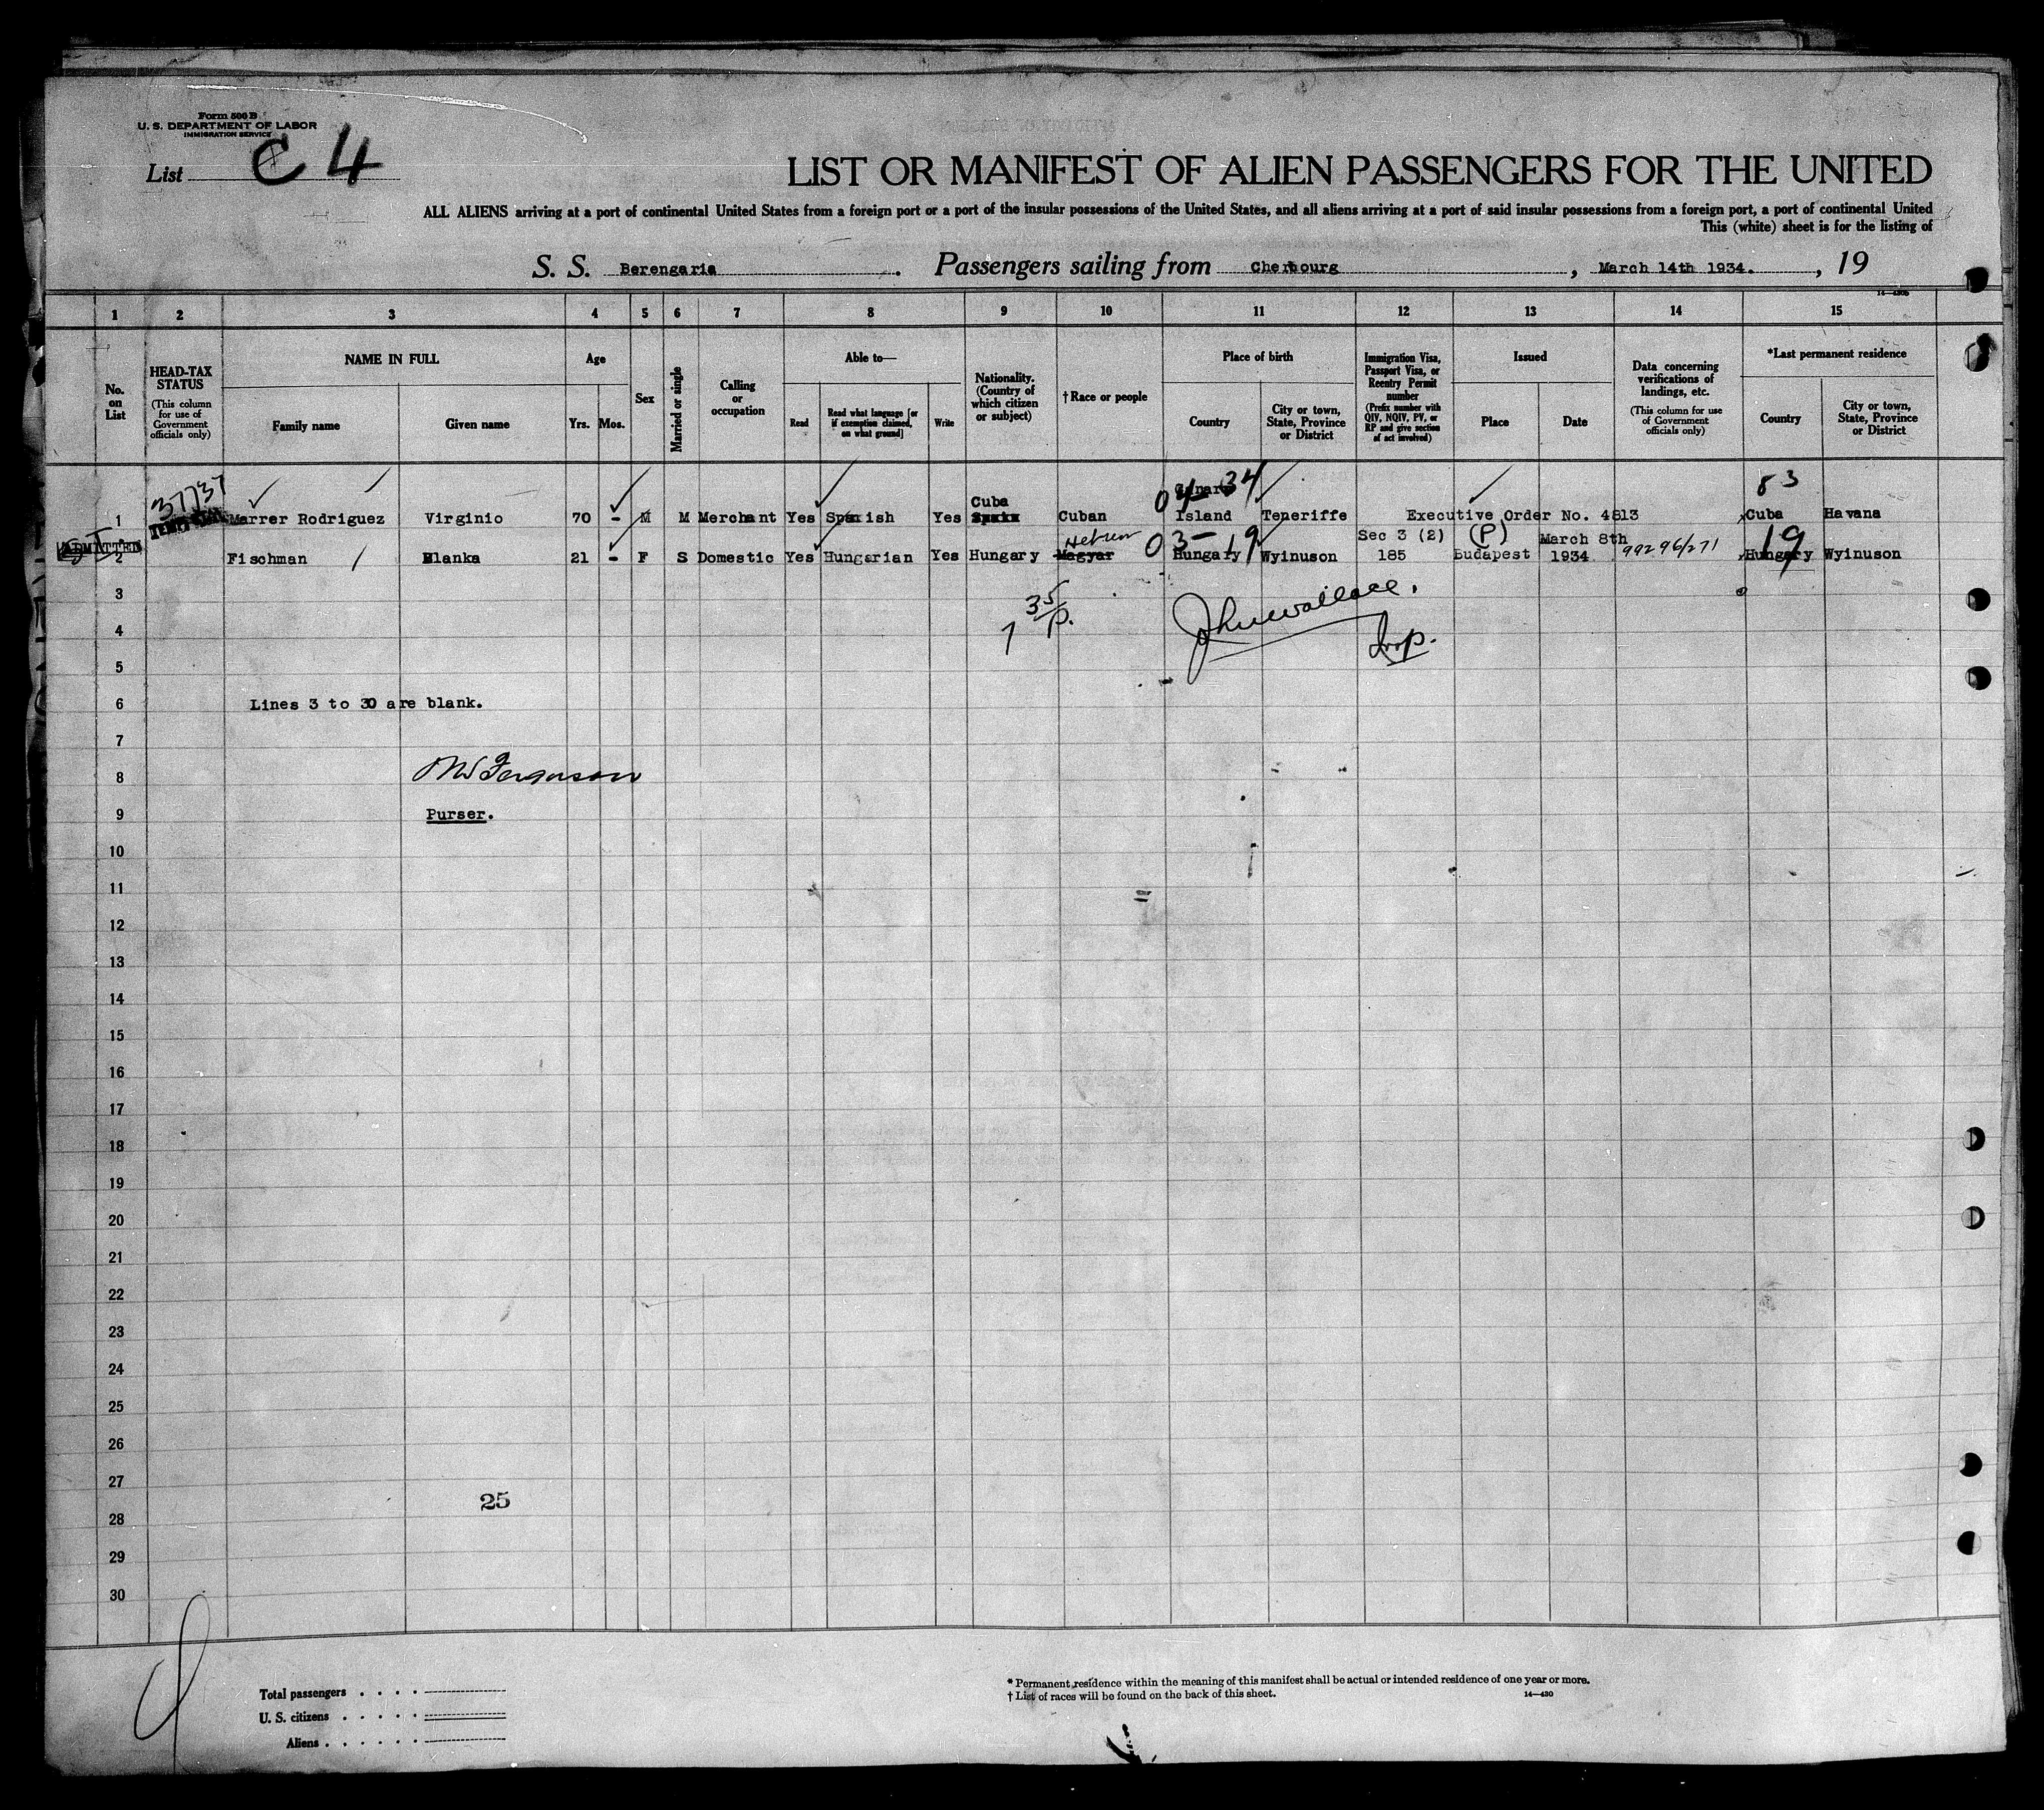 Form 500 B
U. S. DEPARTMENT OF LABOR
IMMIGRATION SERVICE
List C 4
LIST OR MANIFEST OF ALIEN PASSENGERS FOR THE UNITED
ALL ALIENS arriving at a port of continental United States from a foreign port or a port of the insular possessions of the United States, and all aliens arriving at a port of said insular possessions from a foreign port, a port of continental United
This (white) sheet is for the listing of
S. S. Berengaria. Passengers sailing from Cherbourg, March 14th 1934., 19
1 2 3 4 5 6 7 8 9 10 11 12 13 14 15
No. on List
HEAD-TAX STATUS (This column for use of Government officials only)
NAME IN FULL
Family name Given name
Age
Yrs. Mos.
Sex
Married or single
Calling or occupation
Able to—
Read Read what language [or if exemption claimed, on what ground] Write
Nationality. (Country of which citizen or subject)
† Race or people
Place of birth
Country City or town, State, Province or District
Immigration Visa, Passport Visa, or Reentry Permit number (Prefix number with QIV, NQIV, PV, or RP and give section of act involved)
Issued
Place Date
Data concerning verifications of landings, etc. (This column for use of Government officials only)
*Last permanent residence
Country City or town, State, Province or District
37737 04-34 83
Cuba Canary
1 Marrer Rodriguez Virginio 70 - M M Merchant Yes Spanish Yes Spain Cuban Island Teneriffe Executive Order No. 4813 Cuba Havana
ADMITTED Hebrew 03-19 Sec 3 (2) (P) March 8th 19
2 Fischman Blanka 21 - F S Domestic Yes Hungarian Yes Hungary Magyar Hungary Wyinuson 185 Budapest 1934 99296/271 Hungary Wyinuson
3
35/p. Jhn Wallace.
4
1 Insp.
5
6 Lines 3 to 30 are blank.
7
8 Ferguson
9 Purser.
10
11
12
13
14
15
16
17
18
19
20
21
22
23
24
25
26
27
25
28
29
30
Total passengers
U. S. citizens
Aliens
* Permanent residence within the meaning of this manifest shall be actual or intended residence of one year or more.
† List of races will be found on the back of this sheet. 14—430